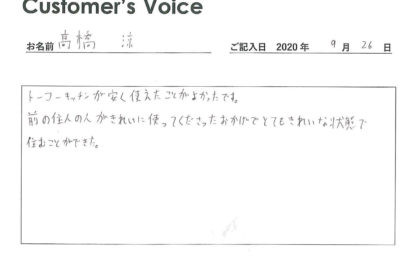 Customer's Voice
お名前 高橋 涼 ご記入日 2020 年 9 月 26 日
トーフーキッチンが安く使えたことがよかったです。
前の住人の人がきれいに使ってくださったおかげでとてもきれいな状態で
住むことができた。